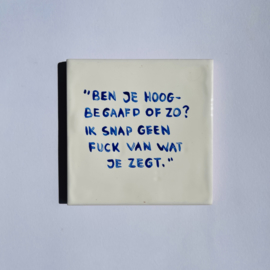 "BEN JE HOOG-
BEGAAFD OF ZO?
IK SNAP GEEN
FUCK VAN WAT
JE ZEGT."